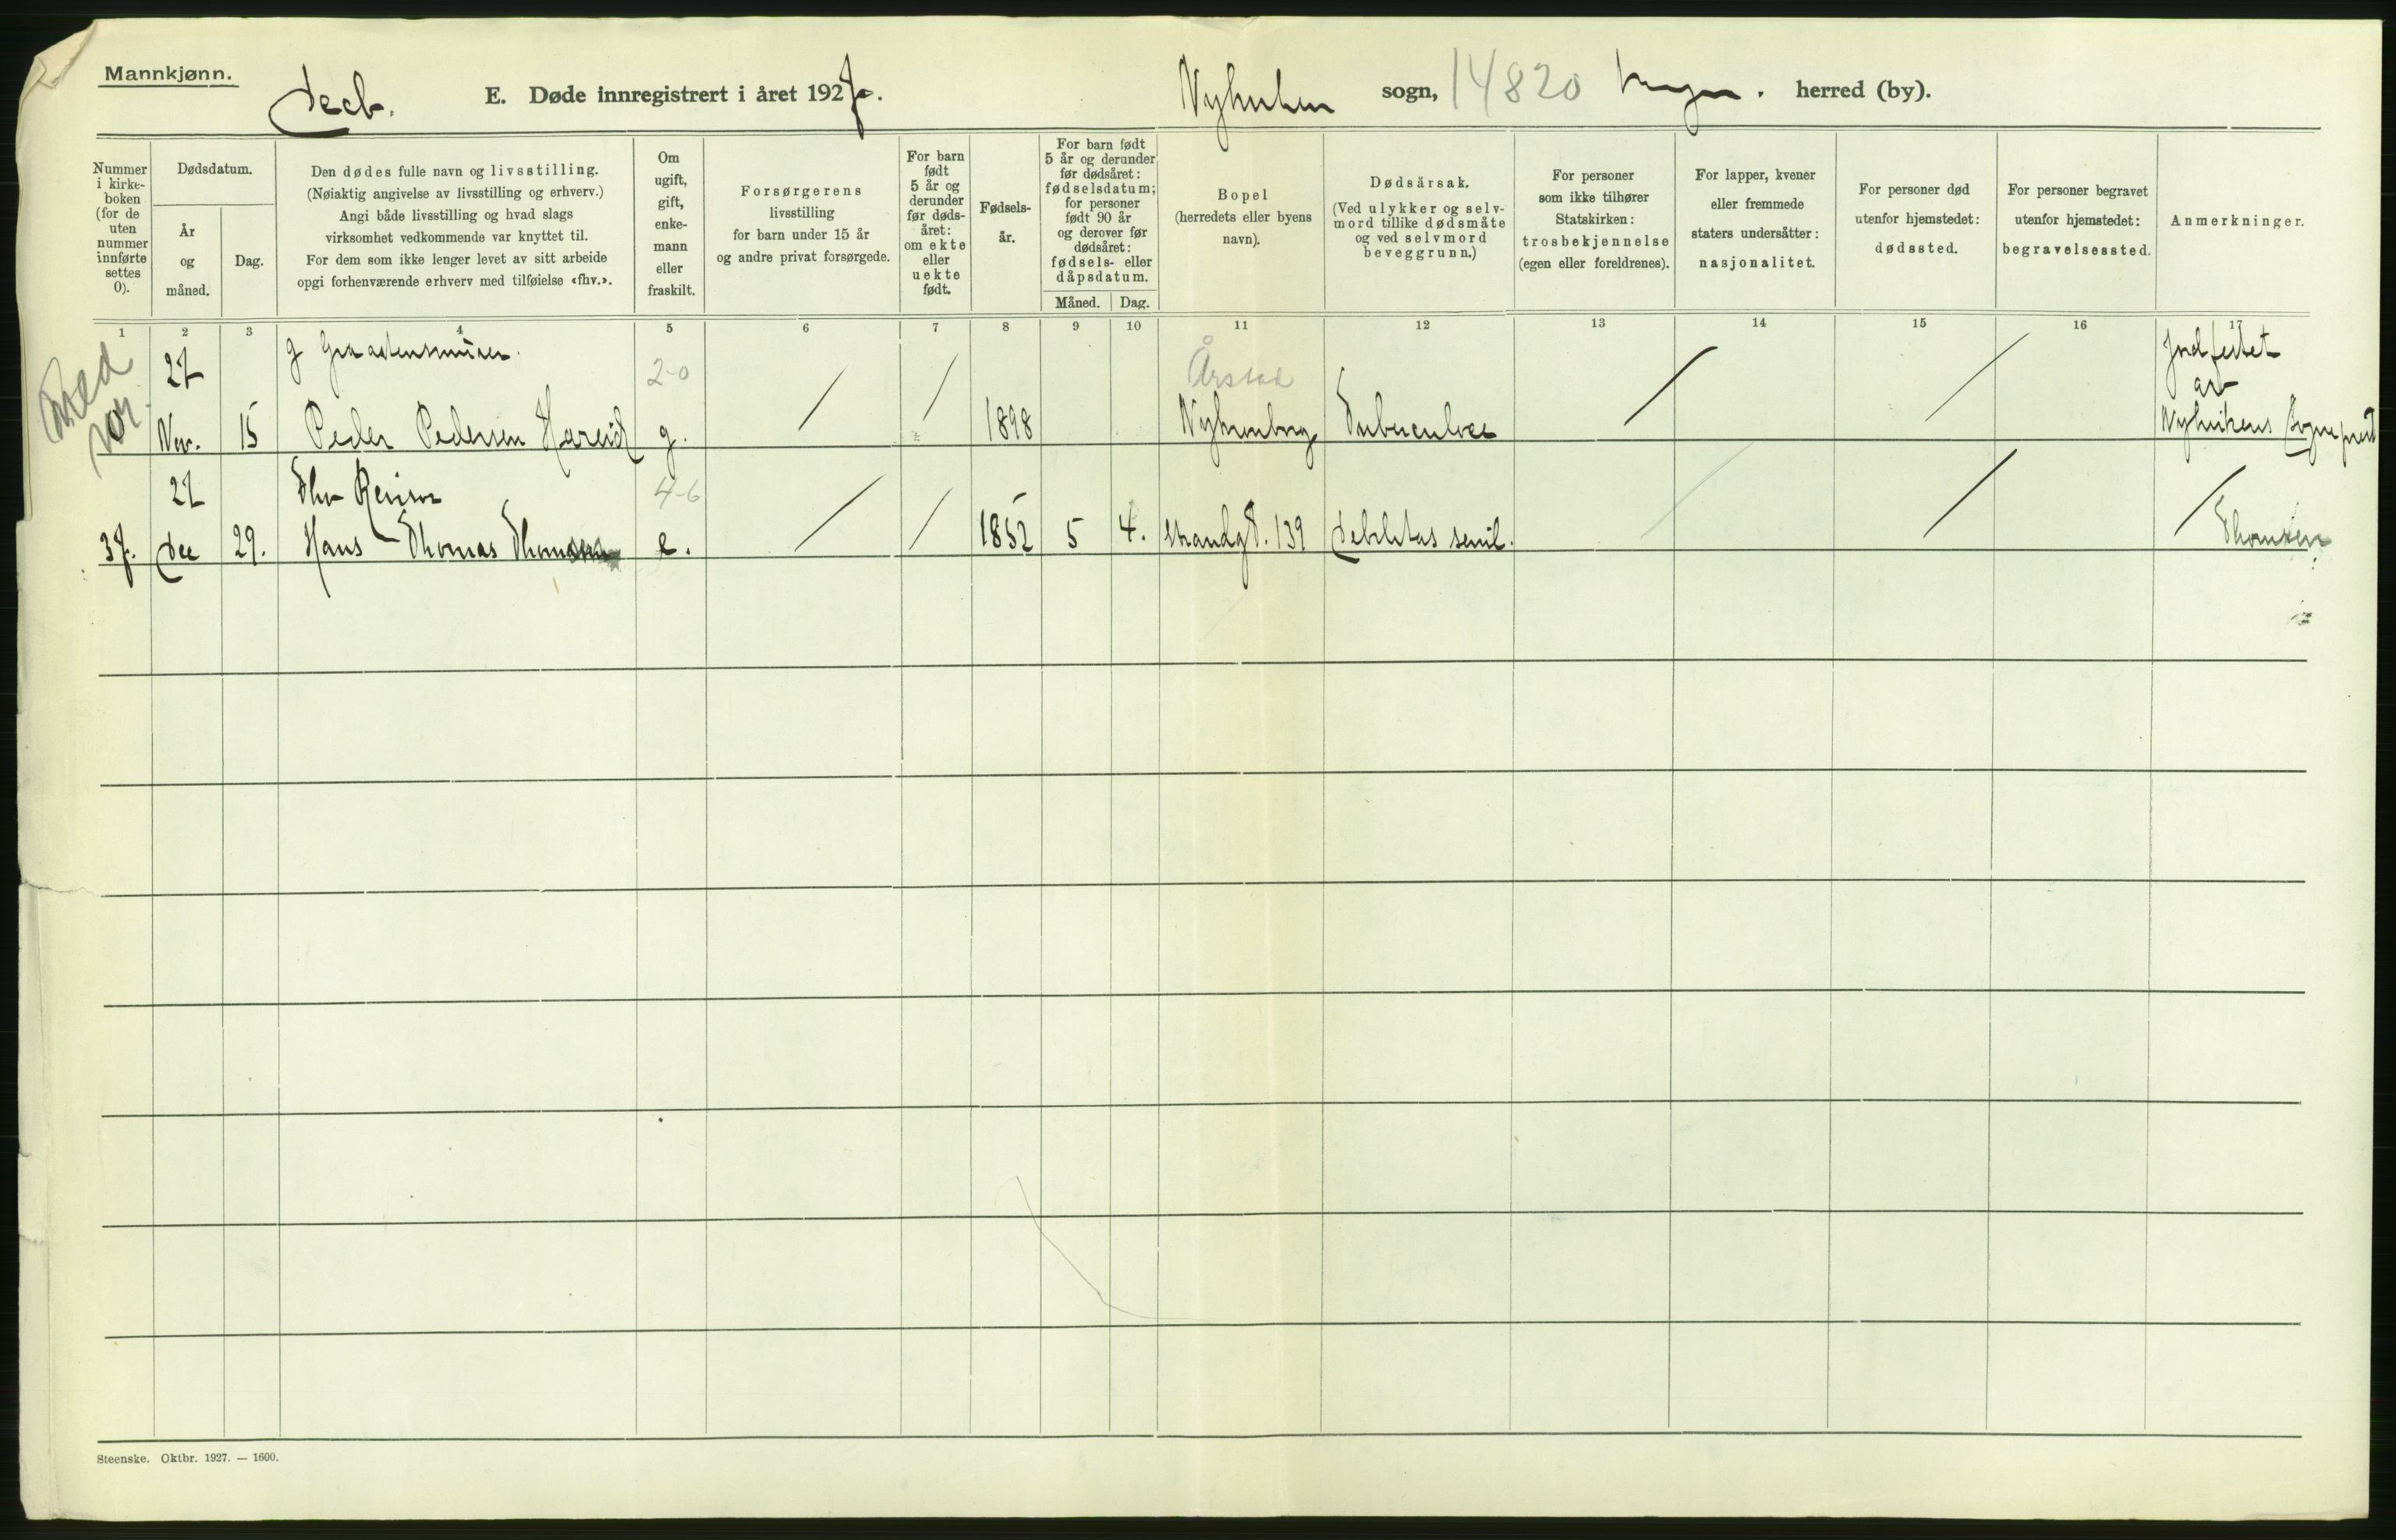 Mannkjønn.
Decb.
E. Døde innregistrert i året 1927.
Nykirken sogn, 14820 herred (by).
Nummer
i kirke-
boken
(for de
uten
nummer
innførte
settes
0).
Dødsdatum.
År
og
måned.
Dag.
Den dødes fulle navn og livsstilling.
(Nøiaktig angivelse av livsstilling og erhverv.)
Angi både livsstilling og hvad slags
virksomhet vedkommende var knyttet til.
For dem som ikke lenger levet av sitt arbeide
opgi forhenværende erhverv med tilføielse «fhv.».
Om
ugift,
gift,
enke-
mann
eller
fraskilt.
Forsørgerens
livsstilling
for barn under 15 år
og andre privat forsørgede.
For barn
født
5 år og
derunder
før døds-
året:
om ekte
eller
uekte
født.
Fødsels-
år.
For barn født
5 år og derunder
før dødsåret:
fødselsdatum;
for personer
født 90 år
og derover før
dødsåret:
fødsels- eller
dåpsdatum.
Måned. Dag.
Bopel
(herredets eller byens
navn).
Dødsårsak.
(Ved ulykker og selv-
mord tillike dødsmåte
og ved selvmord
beveggrunn.)
For personer
som ikke tilhører
Statskirken:
trosbekjennelse
(egen eller foreldrenes).
For lapper, kvener
eller fremmede
staters undersåtter:
nasjonalitet.
For personer død
utenfor hjemstedet:
dødssted.
For personer begravet
utenfor hjemstedet:
begravelsessted.
Anmerkninger.
1 2 3 4 5 6 7 8 9 10 11 12 13 14 15 16 17
27 2-0 Årstad
Nov. 15 Peder Pedersen Hareid g. 1898 Tuberculose
av
Nykirkens Sogneprest
27 Fhv. 4-6
37. Dec 29. Hans Thomas Thomsen e. 1852 5 4. Strandgt. 139 Debilitas senil.
Thomsen
Steenske. Oktbr. 1927. — 1600.